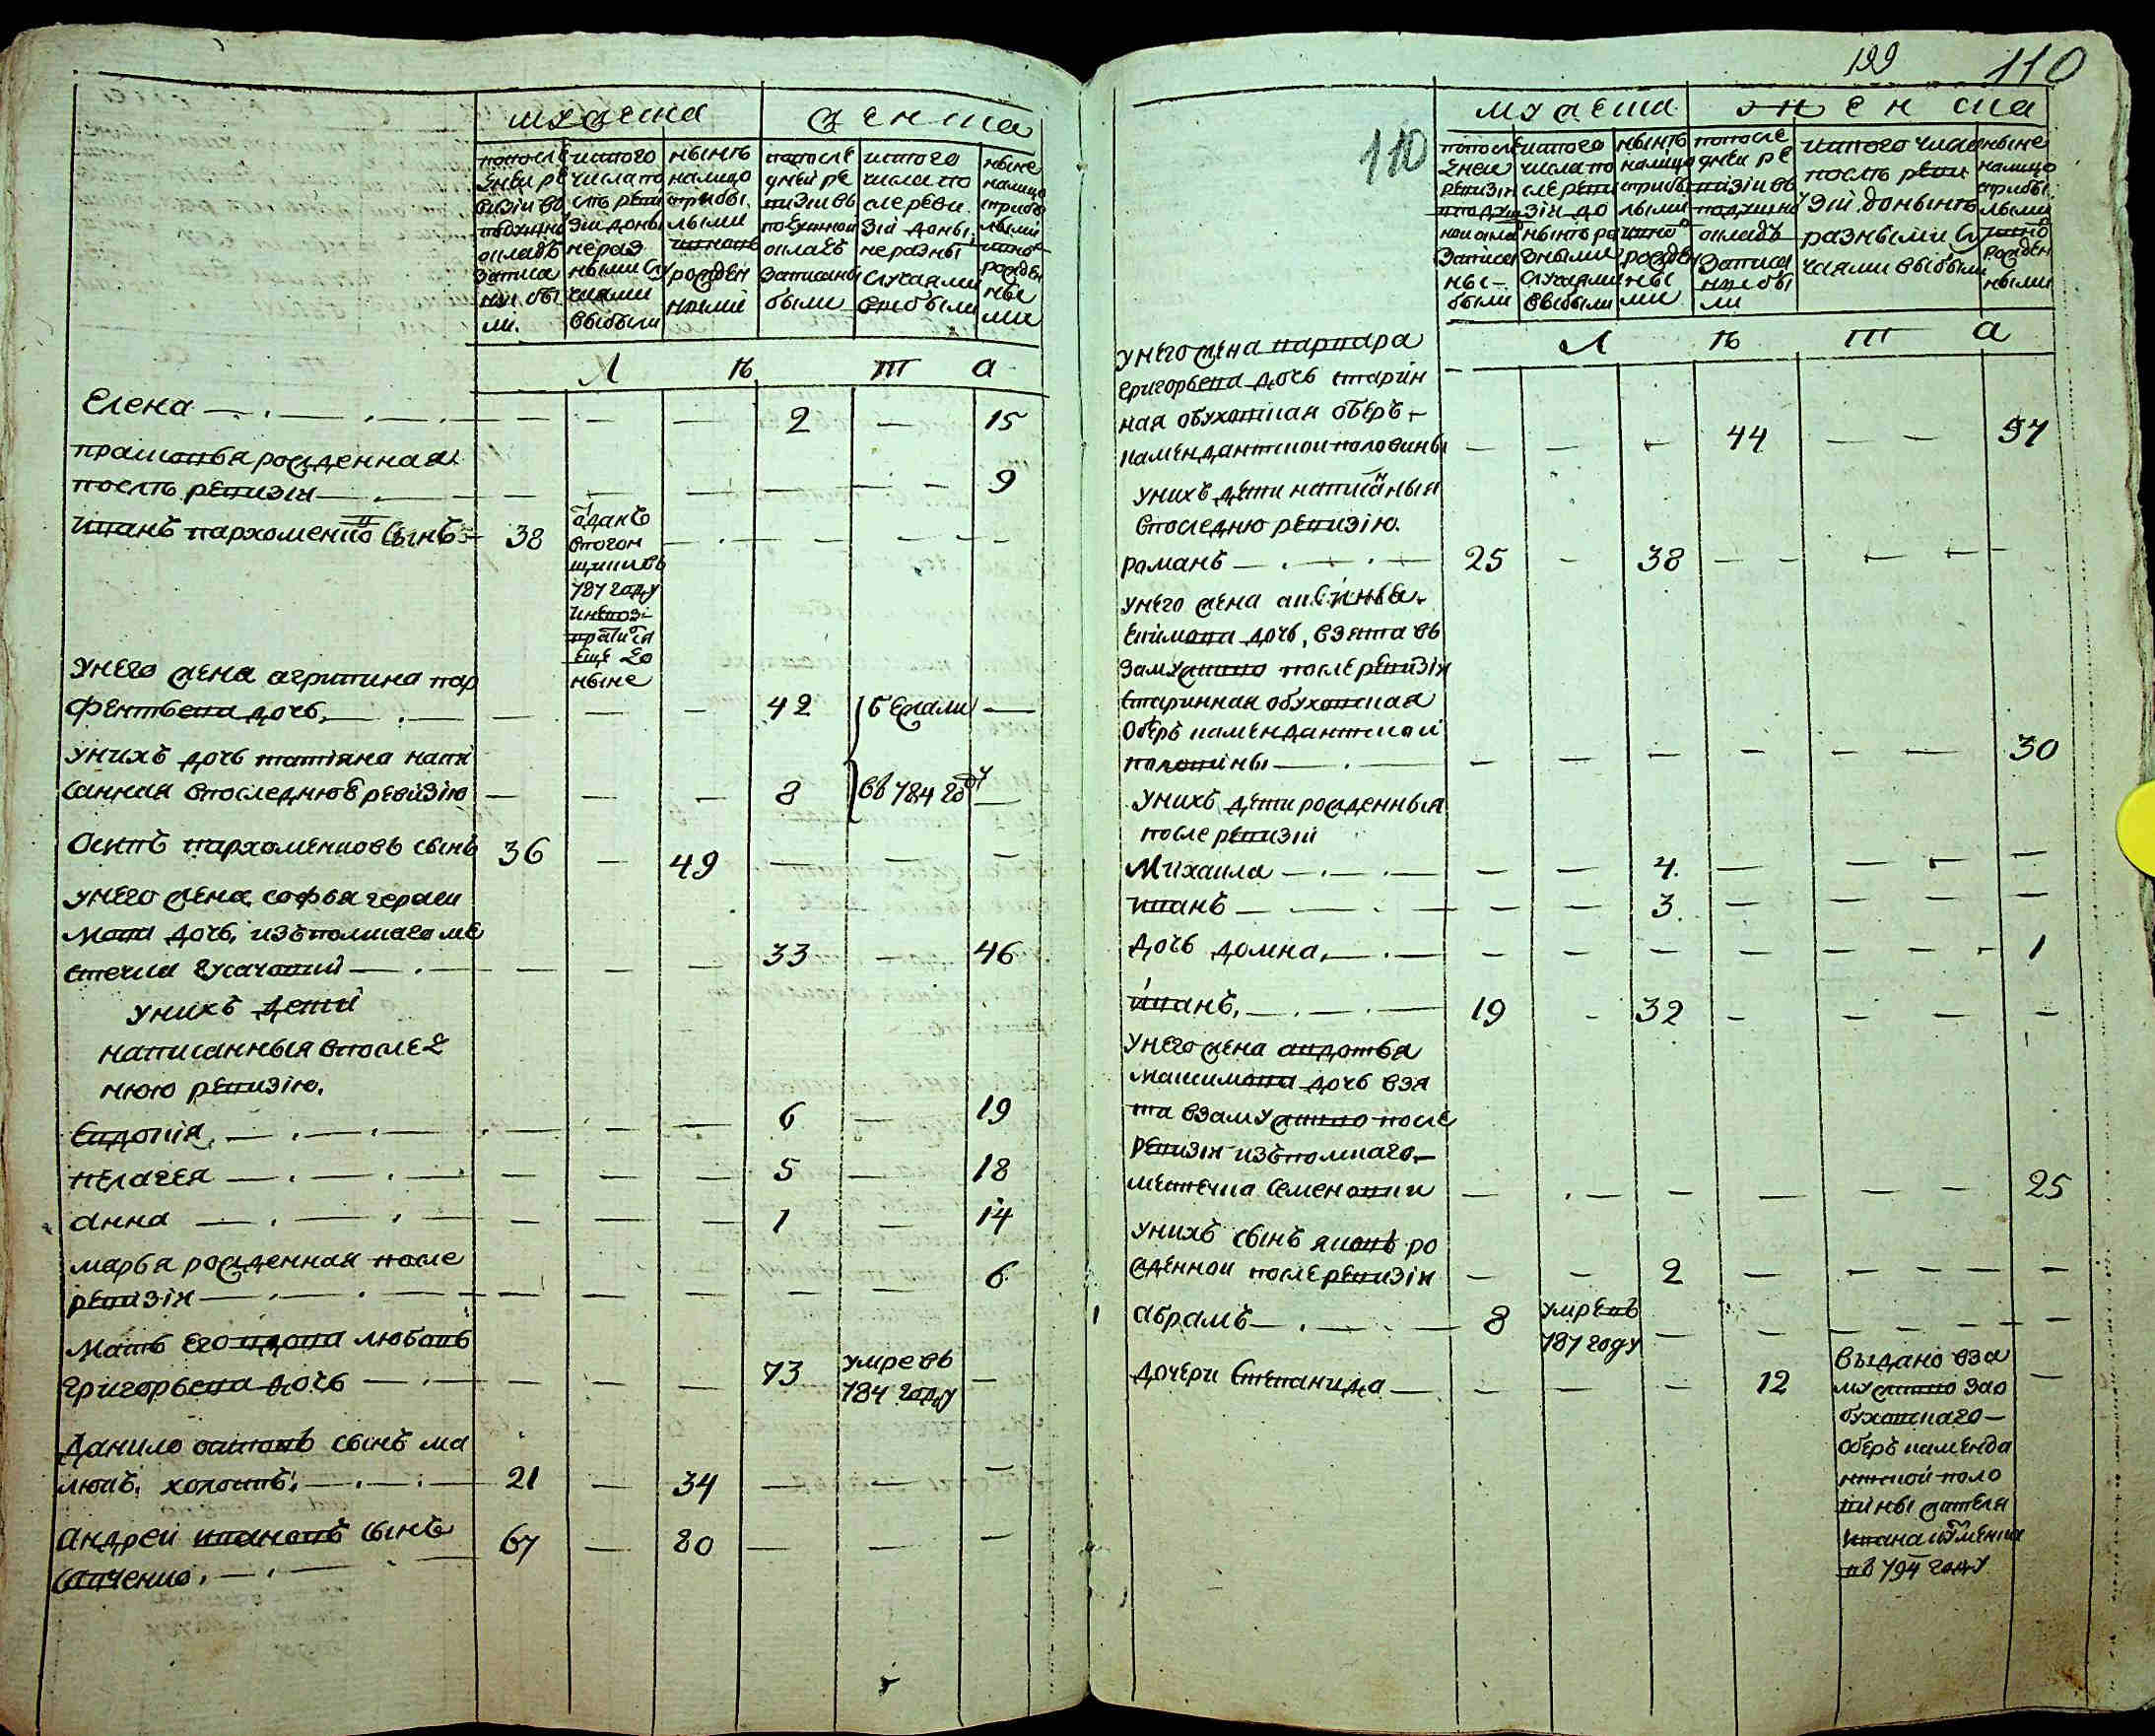 мужеска
женска
попосле
дней ре
визіи въ
подушно
окладъ
записа
ны бы
ли.
изтого
числа по
слѣ реви
зіи доны
не раз
ными слу
чаями
выбыли
нынѣ
налицо
с прибы
лыми
и вновь
рожден
ными
попосле
дней ре
визіи въ
подушной
окладъ
записаны
были
изтого
числа по
сле реви
зіи доны
не разны
случаями
выбыли
ныне
налицо
с прибы
лыми
ивно
рожден
ны
ми
Л ѣ т а
Елена 2 15
прасковья рожденная
послѣ ревизіи 9
Иванъ пархоменко сынъ 38
Оданъ
впогон
щиковъ
787 году
инево зі
вратился
еще до
ныне
Унего жена агрипина пар
фентьева дочь 42 бежали
унихъ дочь татіяна напи
санная впоследнюю ревизію 8 въ 784 году
Осипъ пархоменковъ сынъ 36 49
унего жена софья гераси
мова дочь, изъ полшаго мѣ
стечка гусачовки 33 46
унихъ дети
написанныя впослед
нюю ревизію.
Евдокія 6 19
пелагея 5 18
анна 1 14
марья рожденная после
ревизіи 6
Мать его вдова любовь
григорьева дочь 73 умре въ
784 году
Данило остовъ сынъ ма
люкъ, холостъ, 21 34
андрей ивановъ сынъ 67 80
савченко.
199 110
110
мужеска женска
попосле
дней
ревизіи
в подуш
ной окла
записа
ны
были
изтого
числа по
сле реви
зіи до
нынѣ ра
зными
случаями
выбыли
нынѣ
налицо
с прибы
лыми
ивно
рожден
ны
ми
попосле
дней ре
визіи въ
подушно
окладъ
записа
ны бы
ли
изтого числ
послѣ реви
зіи до нынѣ
разными слу
чаями выбыли
ныне
налицо
с прибы
лыми
ивно
рожден
ными
Л ѣ т а
унего жена варвара
григорьева дочь старин
ная обуховская оберъ
камендантской половины 44 57
унихъ дети написаныя
впоследню ревизію.
романъ 25 38
унего жена аксинья
екимова дочь, взята въ
замужство после ревизіи
старинная обуховская
оберъ камендантской
половины 30
унихъ дети рожденныя
после ревизіи
Михаила 4.
иванъ 3.
дочь домна 1
иванъ 19 32
Унего жена авдотья
максимова дочь взя
та взамужство после
ревизіи изъ полшаго
местечка семеновки 25
унихъ сынъ яковъ ро
жденной после ревизіи 2
абрамъ 8 умре въ
787 году
дочери степанида 12
выдано вза
мужство зао
буховскаго
оберъ каменда
нтской поло
вины жителя
ивана
въ 794 году